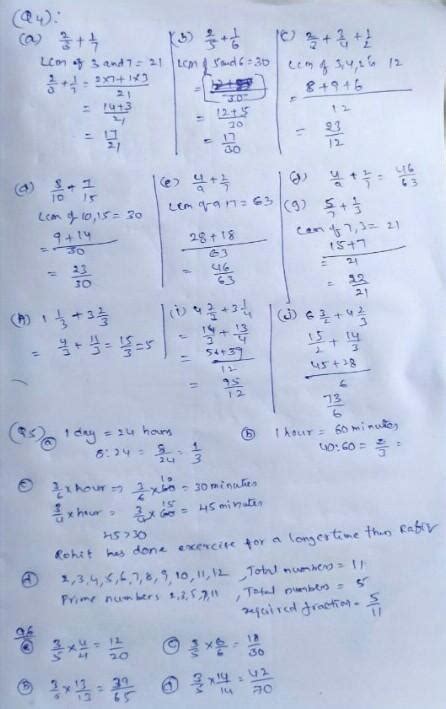 (Q4):
(a) 2/3 + 1/7
Lcm of 3 and 7 = 21
2/3 + 1/7 = 2×7+1×3 / 21
= 14+3 / 21
= 17/21
(b) 2/5 + 1/6
Lcm of 5 and 6 = 30
= 12+5 / 30
= 17/30
(c) 2/3 + 3/4 + 1/2
Lcm of 3,4,2 is 12
8+9+6 / 12
= 23/12
(d) 3/10 + 7/15
Lcm of 10,15 = 30
= 9+14 / 30
= 23/30
(e) 4/9 + 2/7
Lcm of 9,7 = 63
28+18 / 63
= 46/63
4/9 + 2/7 = 46/63
(g) 5/7 + 1/3
Lcm of 7,3 = 21
15+7 / 21
= 22/21
(h) 1 1/3 + 3 2/3
= 4/3 + 11/3 = 15/3 = 5
(i) 4 2/3 + 3 1/4
= 14/3 + 13/4
= 12
= 95/12
(j) 2 + 4 2/3
15/2 + 14/3
45+28 / 6
73/6
(Q5)
(a) 1 day = 24 hours
8:24 = 8/24 = 1/3
(b) 1 hour = 60 minutes
40:60 = 2/3 =
(c) 3/6 × hour => 3/6 × 60 10 = 30 minutes
3/4 × hour = 3/4 × 60 15 = 45 minutes
45 > 30
Rohit has done exercise for a longer time than
(d) 2,3,4,5,6,7,8,9,10,11,12 , Total numbers = 11
Prime numbers 2,3,5,7,11 , Total numbers = 5
required fraction = 5/11
Q6
(a) 3/5 × 4/4 = 12/20
(c) 3/5 × 6/6 = 18/30
(b) 3/5 × 13/13 = 39/65
(d) 3/5 × 14/14 = 42/70